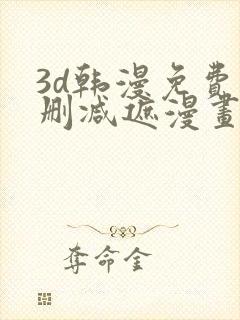 3d韩漫免费
删减遮漫畫
夺命金